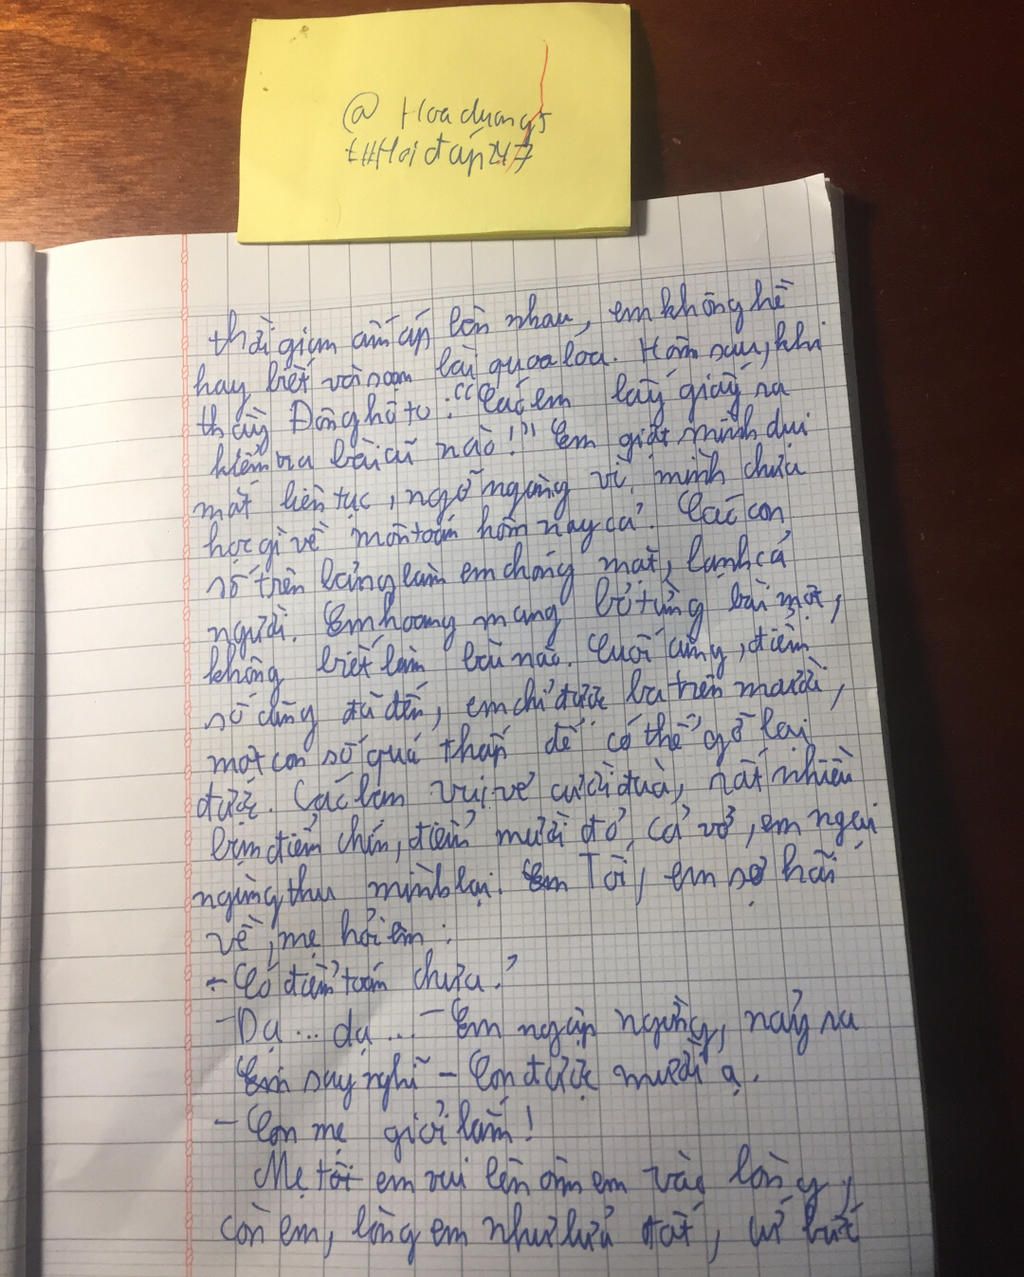 @ Hoaduong5
#Hoiđáp247
thời gian ấm áp bên nhau, em không hề
hay biết và soạn bài qua loa. Hôm sau, khi
thầy Đông hô to: "Các em lấy giấy ra
kiểm tra bài cũ nào!" Em giật mình dụi
mắt liên tục, ngỡ ngàng vì mình chưa
học gì về môn toán hôm nay cả. Các con
số trên bảng làm em chóng mặt, lạnh cả
người. Em hoang mang bỏ từng bài một,
không biết làm bài nào. Cuối cùng, điểm
số cũng đã đến, em chỉ được ba trên mười,
một con số quá thấp để có thể gỡ lại
được. Các bạn vui vẻ cười đùa, rất nhiều
bạn điểm chín, điểm mười đỏ cả vở, em ngại
ngùng thu mình lại. Tối, em sợ hãi
về, mẹ hỏi em:
- Có điểm toán chưa?
- Dạ... dạ... - Em ngập ngừng, nảy ra
suy nghĩ - Con được mười ạ.
- Con mẹ giỏi lắm!
Mẹ em vui lên ôm em vào lòng,
còn em, lòng em như lửa đốt, cứ bứt